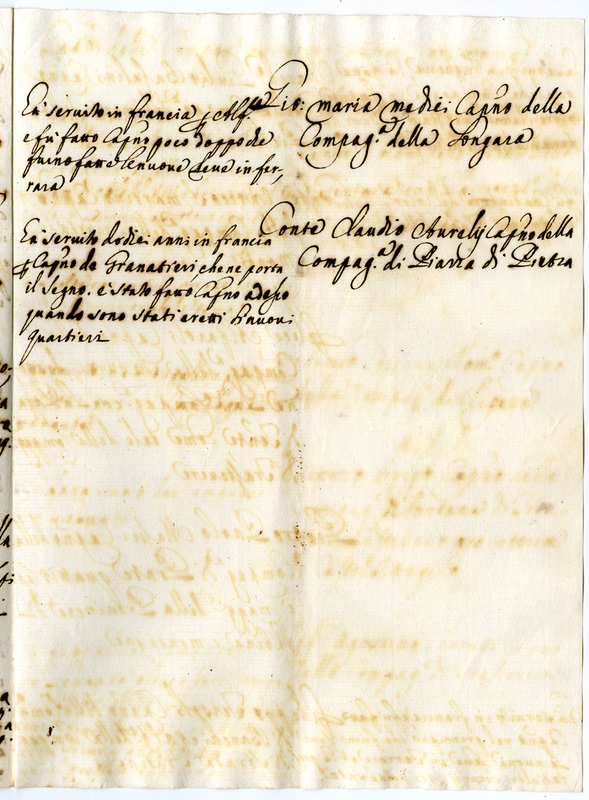 Gio: maria medici Capno della
Compag.a della Longara
Hà servito in francia p Alf.
e fù fatto Capno poco doppo che
furno fatte le nuove leve in fer,
rara
Conte Claudio Aurelij Capno della
Compag.a di Piazza di Pietra
Hà servito dodici anni in francia
p Capno de Granatieri che ne porta
il segno. è stato fatto Capno adesso
quando sono stati eretti li nuovi
quartieri